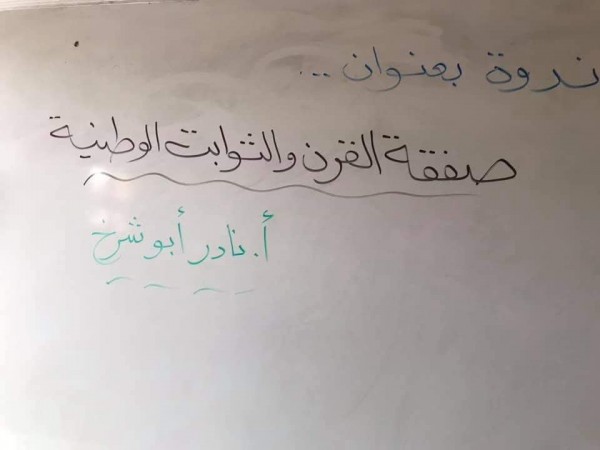 ندوة بعنوان ...
صفقة القرن والثوابت الوطنية
أ. نادر أبو شرخ